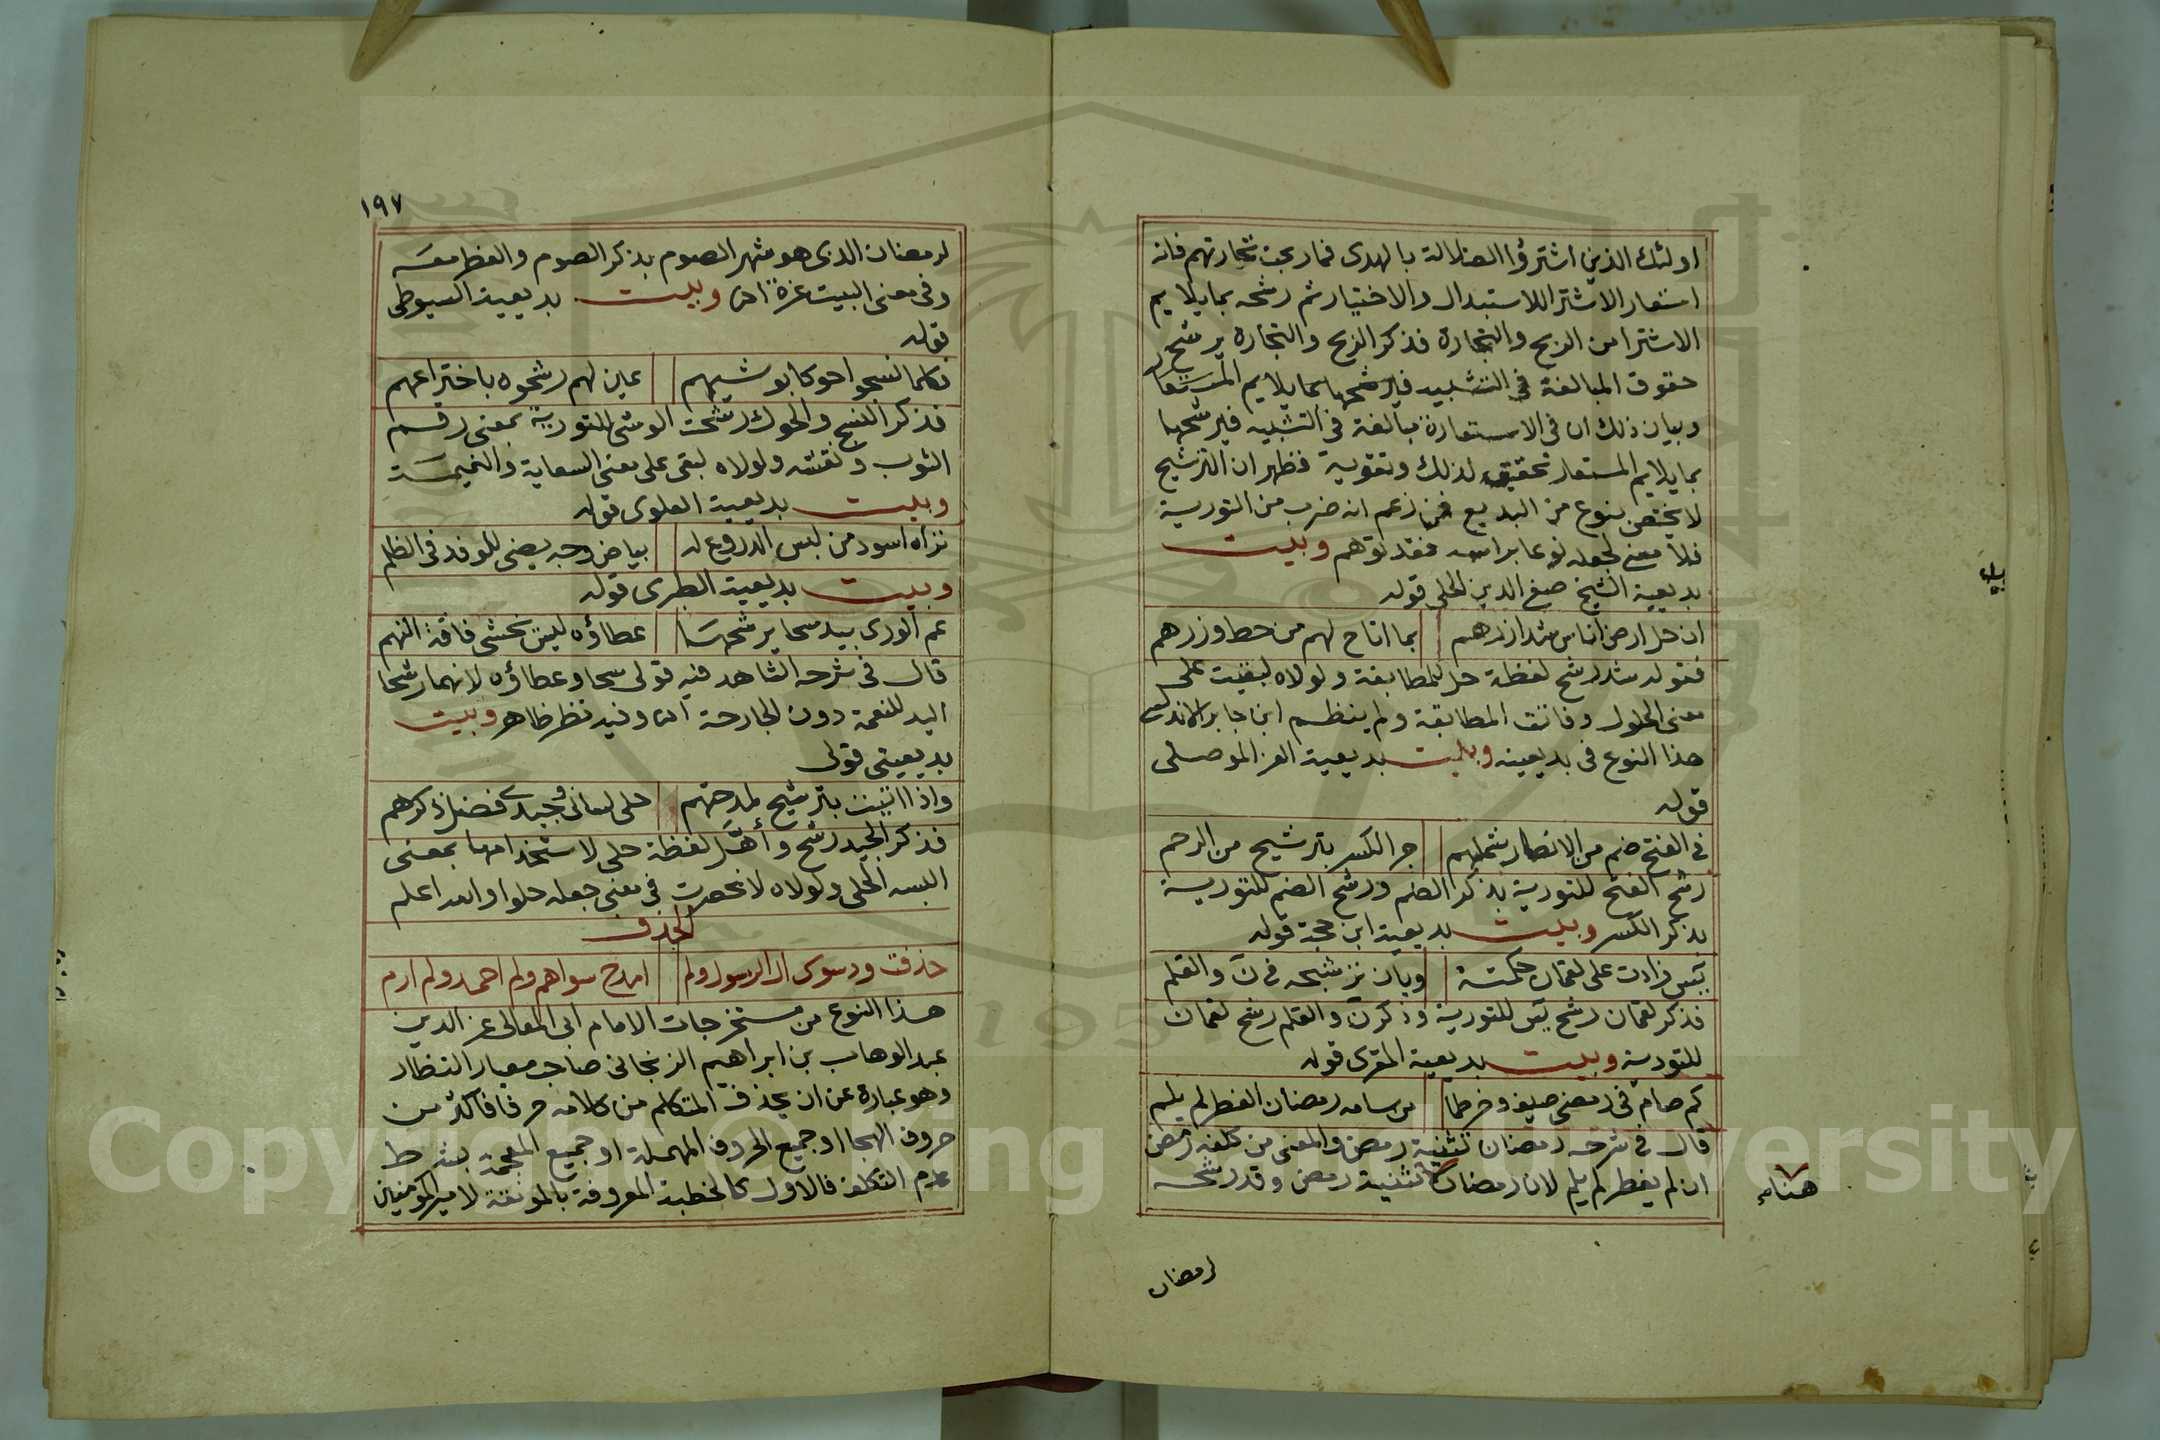 اولئك الذين اشتروا الضلالة بالهدى فما ربحت تجارتهم فانه
استعار الاشترا للاستبدال والاختيار ثم رشحه بما يلايم
الاشترا من الربح والتجارة فذكر الربح والتجارة ترشيح
حقوق المبالغة في التشبيه فيرشحها بما يلايم المستعار
وبيان ذلك ان في الاستعارة مبالغة في التشبيه فيرشحها
بما يلايم المستعار تحقيق لذلك وتقوية فظهر ان الترشيح
لا يختص بنوع من البديع فمن زعم انه ضرب من التورية
فلا معنى لجعله نوعا براسه فقد توهم وبيت
بديعية الشيخ صفي الدين الحلي قوله
ان حل ارض اناس شد ازرهم بما اتاح لهم من حط وزرهم
فقوله شد رشح لفظة حل للمطابقة ولولاه لبقيت على
معنى الحلول وفاتت المطابقة ولم ينظم ابن جابر الاندلسي
هذا النوع في بديعيته وبيت بديعية العز الموصلي
قوله
في الفتح ضم من الانصار شملهم جر الكسر بترشيح من الرحم
رشح الفتح للتورية بذكر الضم ورشح الضم للتورية
بذكر الكسر وبيت بديعية ابن حجة قوله
يس زادت على لقمان حكمته وبان ترشيحه في ن والقلم
فذكر لقمان رشح يس للتورية وذكر ن والقلم رشح لقمان
للتورية وبيت بديعية المقري قوله
كم صام في رمضي صيف وخرطما من سامه رمضان الفطر لم يلم
قال في شرحه رمضان تثنية رمض والمعنى من كلفه رمض
ان لم يفطر لم يلم لان رمضان تثنية رمض وقد رشحه
هناء
لرمضان
١٩٧
لرمضان الذي هو شهر الصوم بذكر الصوم والفطر معه
وفي معنى البيت غزة اه وبيت بديعية السيوطي
قوله
فكلما نسجوا حوكا بوشيهم عين لهم رشحوه باختراعهم
فذكر النسج والحوك رشحت الوشي للتورية بمعنى رقم
الثوب ونقشه ولولاه لبقي على معنى السعاية والنميمة
وبيت بديعية العلوي قوله
تراه اسود من لبس الدروع له بياض وجه يضي للوفد في الظلم
وبيت بديعية الطبري قوله
عم الورى بيد سحا يرشحها عطاؤه ليس يخشى فاقة النهم
قال في شرحه الشاهد فيه قولي سحا وعطاؤه لانهما رشحا
اليد للنعمة دون الجارحة اه وفيه نظر ظاهر وبيت
بديعيتي قولي
واذا اتيت بترشيح لمدحتهم حلى لساني وجيدي فضل ذكرهم
فذكر الجيد رشح وأهل لفظة حلى لاستخدامها بمعنى
البسه الحلي ولولاه لانحصرت في معنى جعله حلوا والله اعلم
الحذف
حذفت ود سوى ال الرسول ولم امدح سواهم ولم احمد ولم ارم
هذا النوع من مستخرجات الامام ابي المعالي عز الدين
عبد الوهاب بن ابراهيم الزنجاني صاحب معيار النظار
وهو عبارة عن ان يحذف المتكلم من كلامه حرفا فاكثر من
حروف الهجا او جميع الحروف المهملة او جميع المعجمة بشرط
عدم التكلف فالاول كالخطبة المعروفة بالمونقة لامير المومنين